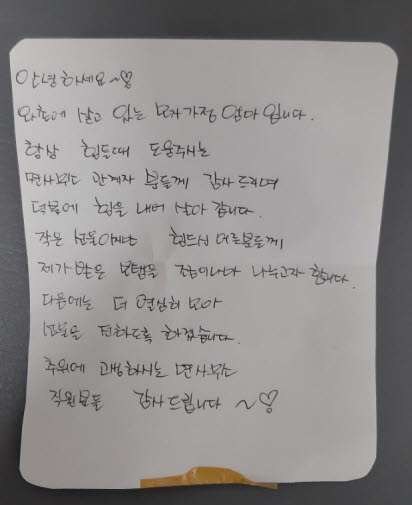 안녕하세요~♡
와촌에 살고 있는 모자가정 엄마 입니다.
항상 힘들때 도움주시는
면사무소 관계자 분들께 감사드리며
덕분에 힘을 내어 살아 갑니다.
작은 선물이지만 힘드신 어르분들께
제가 받은 보탬을 조금이나마 나누고자 합니다.
다음에는 더 열심히 모아
선물을 전하도록 하겠습니다.
추위에 고생하시는 면사무소
직원분들 감사드립니다 ~♡